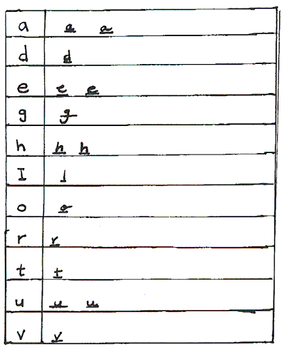 a a a
d d
e e e
g g
h h h
I l
o o
r r
t t
u u u
v v